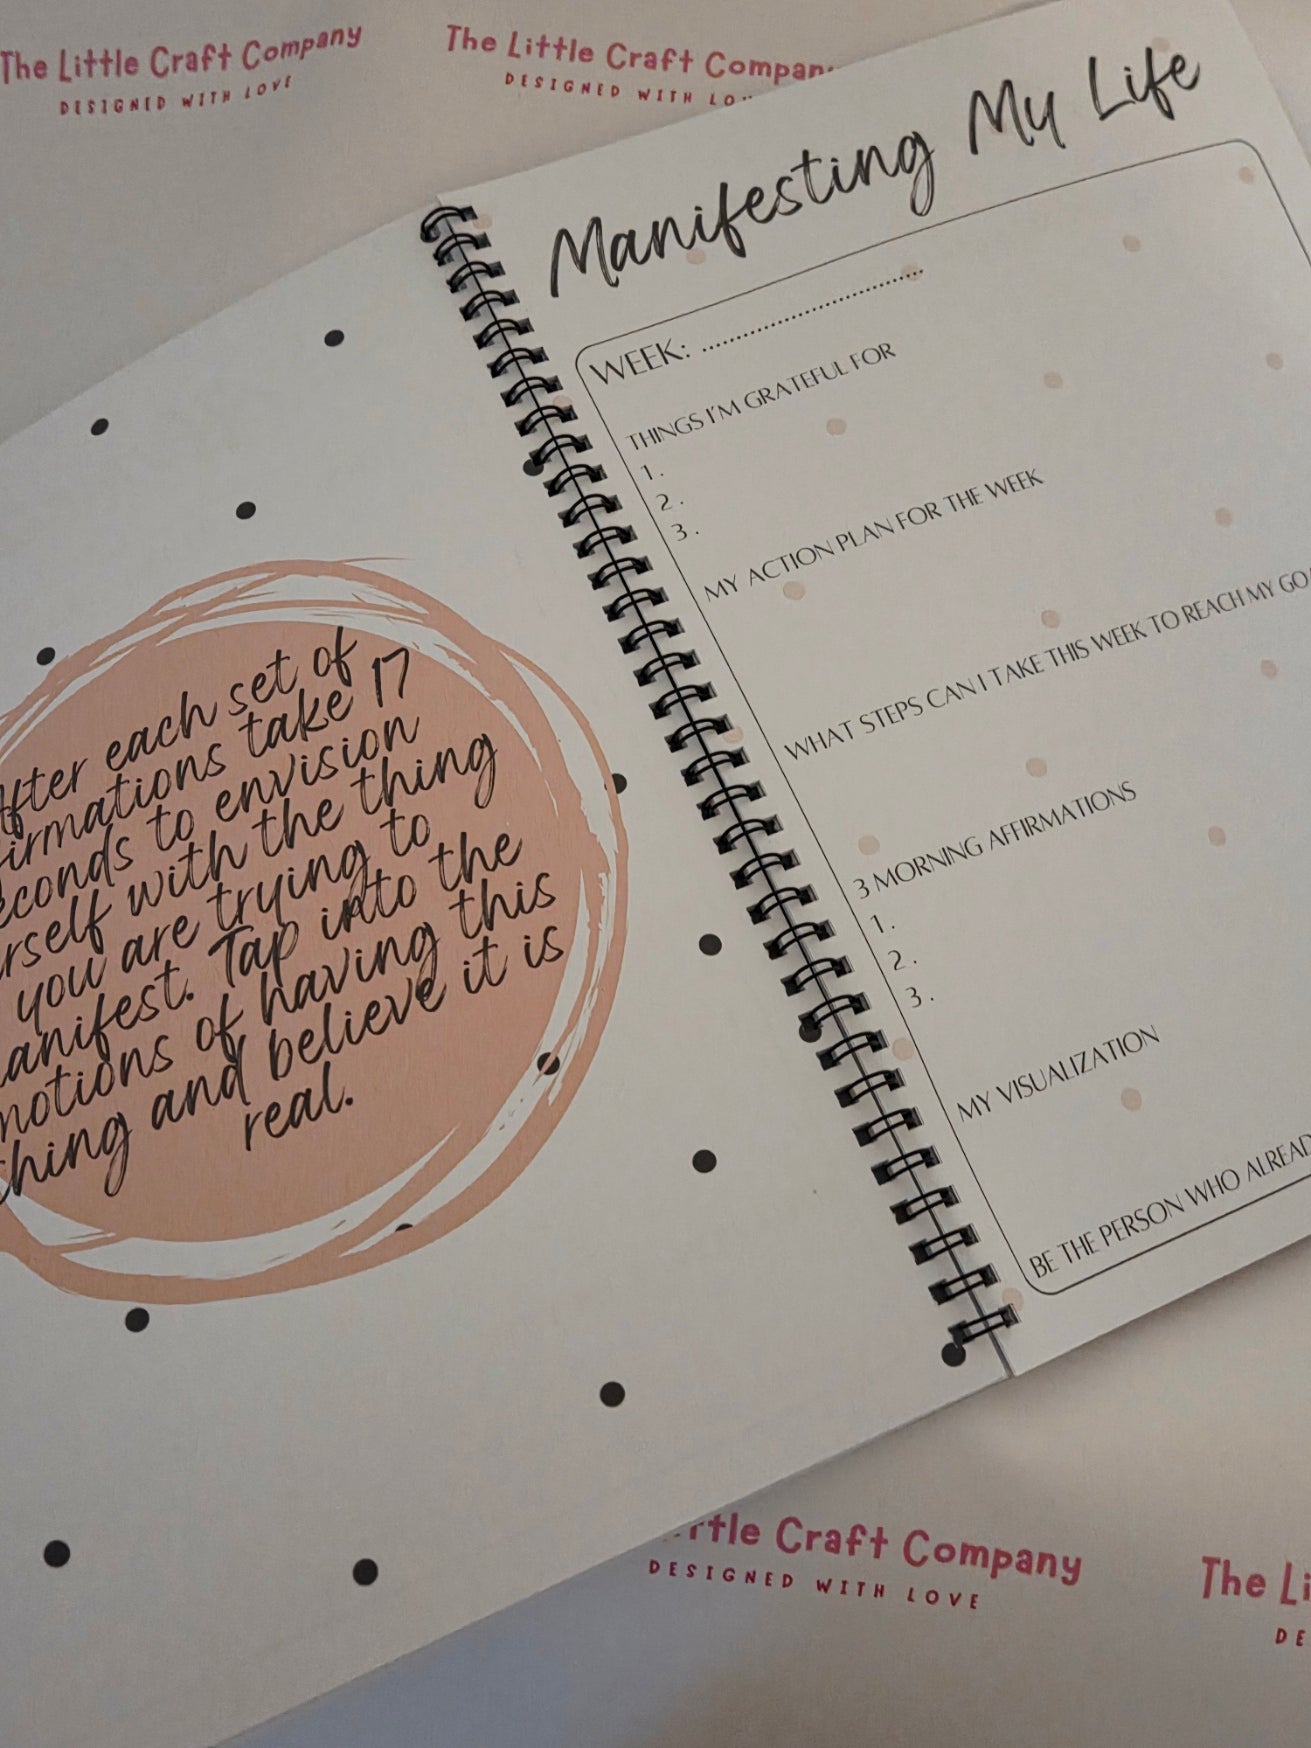 The Little Craft Company
DESIGNED WITH LOVE
The Little Craft Company
DESIGNED WITH
each set of
take 17
to envision
with the thing
you are trying to
Tap into the
of having this
and believe it is
real.
Manifesting My Life
WEEK: ..............................
THINGS I'M GRATEFUL FOR
1.
2.
3.
MY ACTION PLAN FOR THE WEEK
WHAT STEPS CAN I TAKE THIS WEEK TO REACH MY
3 MORNING AFFIRMATIONS
1.
2.
3.
MY VISUALIZATION
BE THE PERSON WHO
Craft Company
DESIGNED WITH LOVE
The